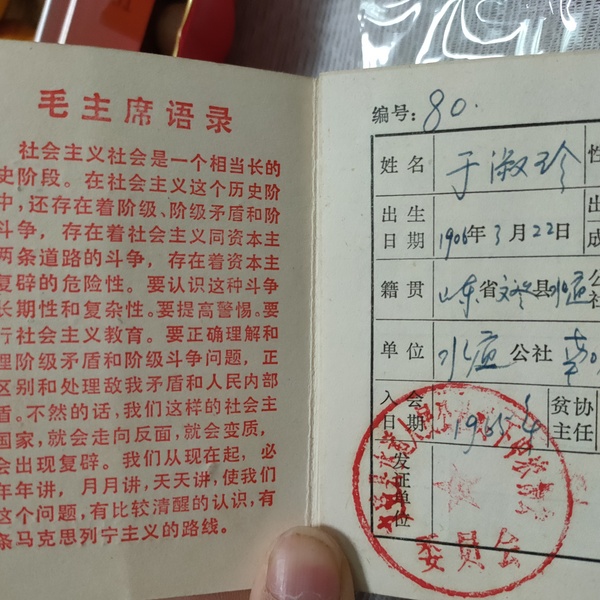 毛主席语录
社会主义社会是一个相当长的
史阶段。在社会主义这个历史阶
中,还存在着阶级、阶级矛盾和阶
斗争,存在着社会主义同资本主
两条道路的斗争,存在着资本主
复辟的危险性。要认识这种斗争
长期性和复杂性。要提高警惕。要
行社会主义教育。要正确理解和
理阶级矛盾和阶级斗争问题,正
区别和处理敌我矛盾和人民内部
盾。不然的话,我们这样的社会主
国家,就会走向反面,就会变质,
会出现复辟。我们从现在起,必
年年讲,月月讲,天天讲,使我们
这个问题,有比较清醒的认识,有
条马克思列宁主义的路线。
编号:80.
姓名 于淑珍 性
出生日期 1906年3月22日 出成
籍贯 山东省文登县水道公社
单位 水道公社
入会日期 1965. 贫协主任
发证单位
委员会